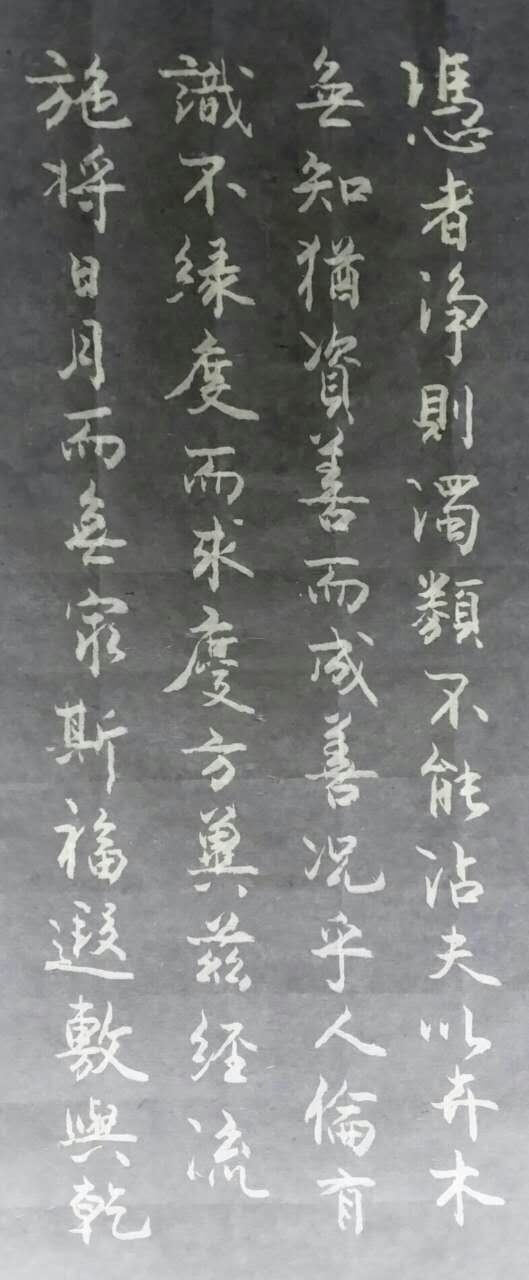 憑者淨則濁類不能沾夫以卉木
無知猶資善而成善況乎人倫有
識不緣慶而求慶方冀茲經流
施將日月而無窮斯福遐敷與乾